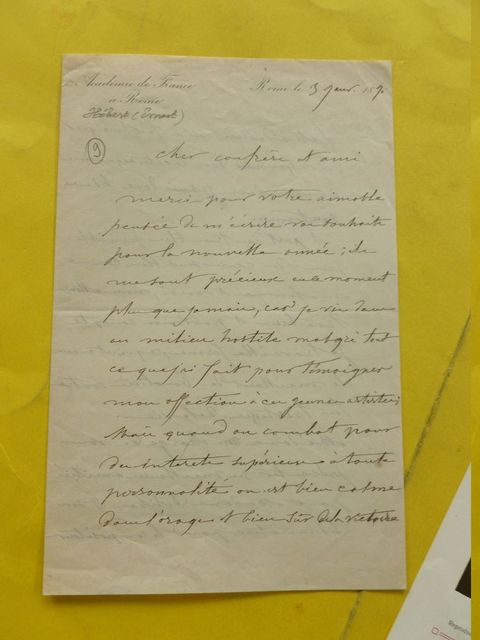 Académie de France
à Rome
Rome le 3 janv. 189
Hébert (Ernest)
9
Cher confrère et ami
merci pour votre aimable
pensée de m'écrire vos souhaits
pour la nouvelle année ; ils
me sont précieux en ce moment
plus que jamais, car je vis dans
un milieu hostile malgré tout
ce que j'ai fait pour témoigner
mon affection à ces jeunes artistes ;
Mais quand on combat pour
des interets supérieurs à toute
personnalité on est bien calme
dans l'orage et bien sûr de la victoire
Reprodu